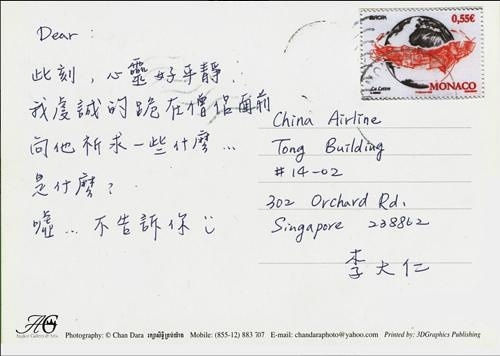 Dear :
此刻，心靈好平靜．
我虔誠的跪在僧侶面前
向他祈求一些什麼…
是什麼？
噓…不告訴你
EUROPA
0,55€
La Lettre
MONACO
China Airline
Tong Building
#14-02
302 Orchard Rd.
Singapore 238862
李大仁
AG
Photography: © Chan Dara
Mobile: (855-12) 883 707
E-mail: chandaraphoto@yahoo.com
Printed by: 3DGraphics Publishing